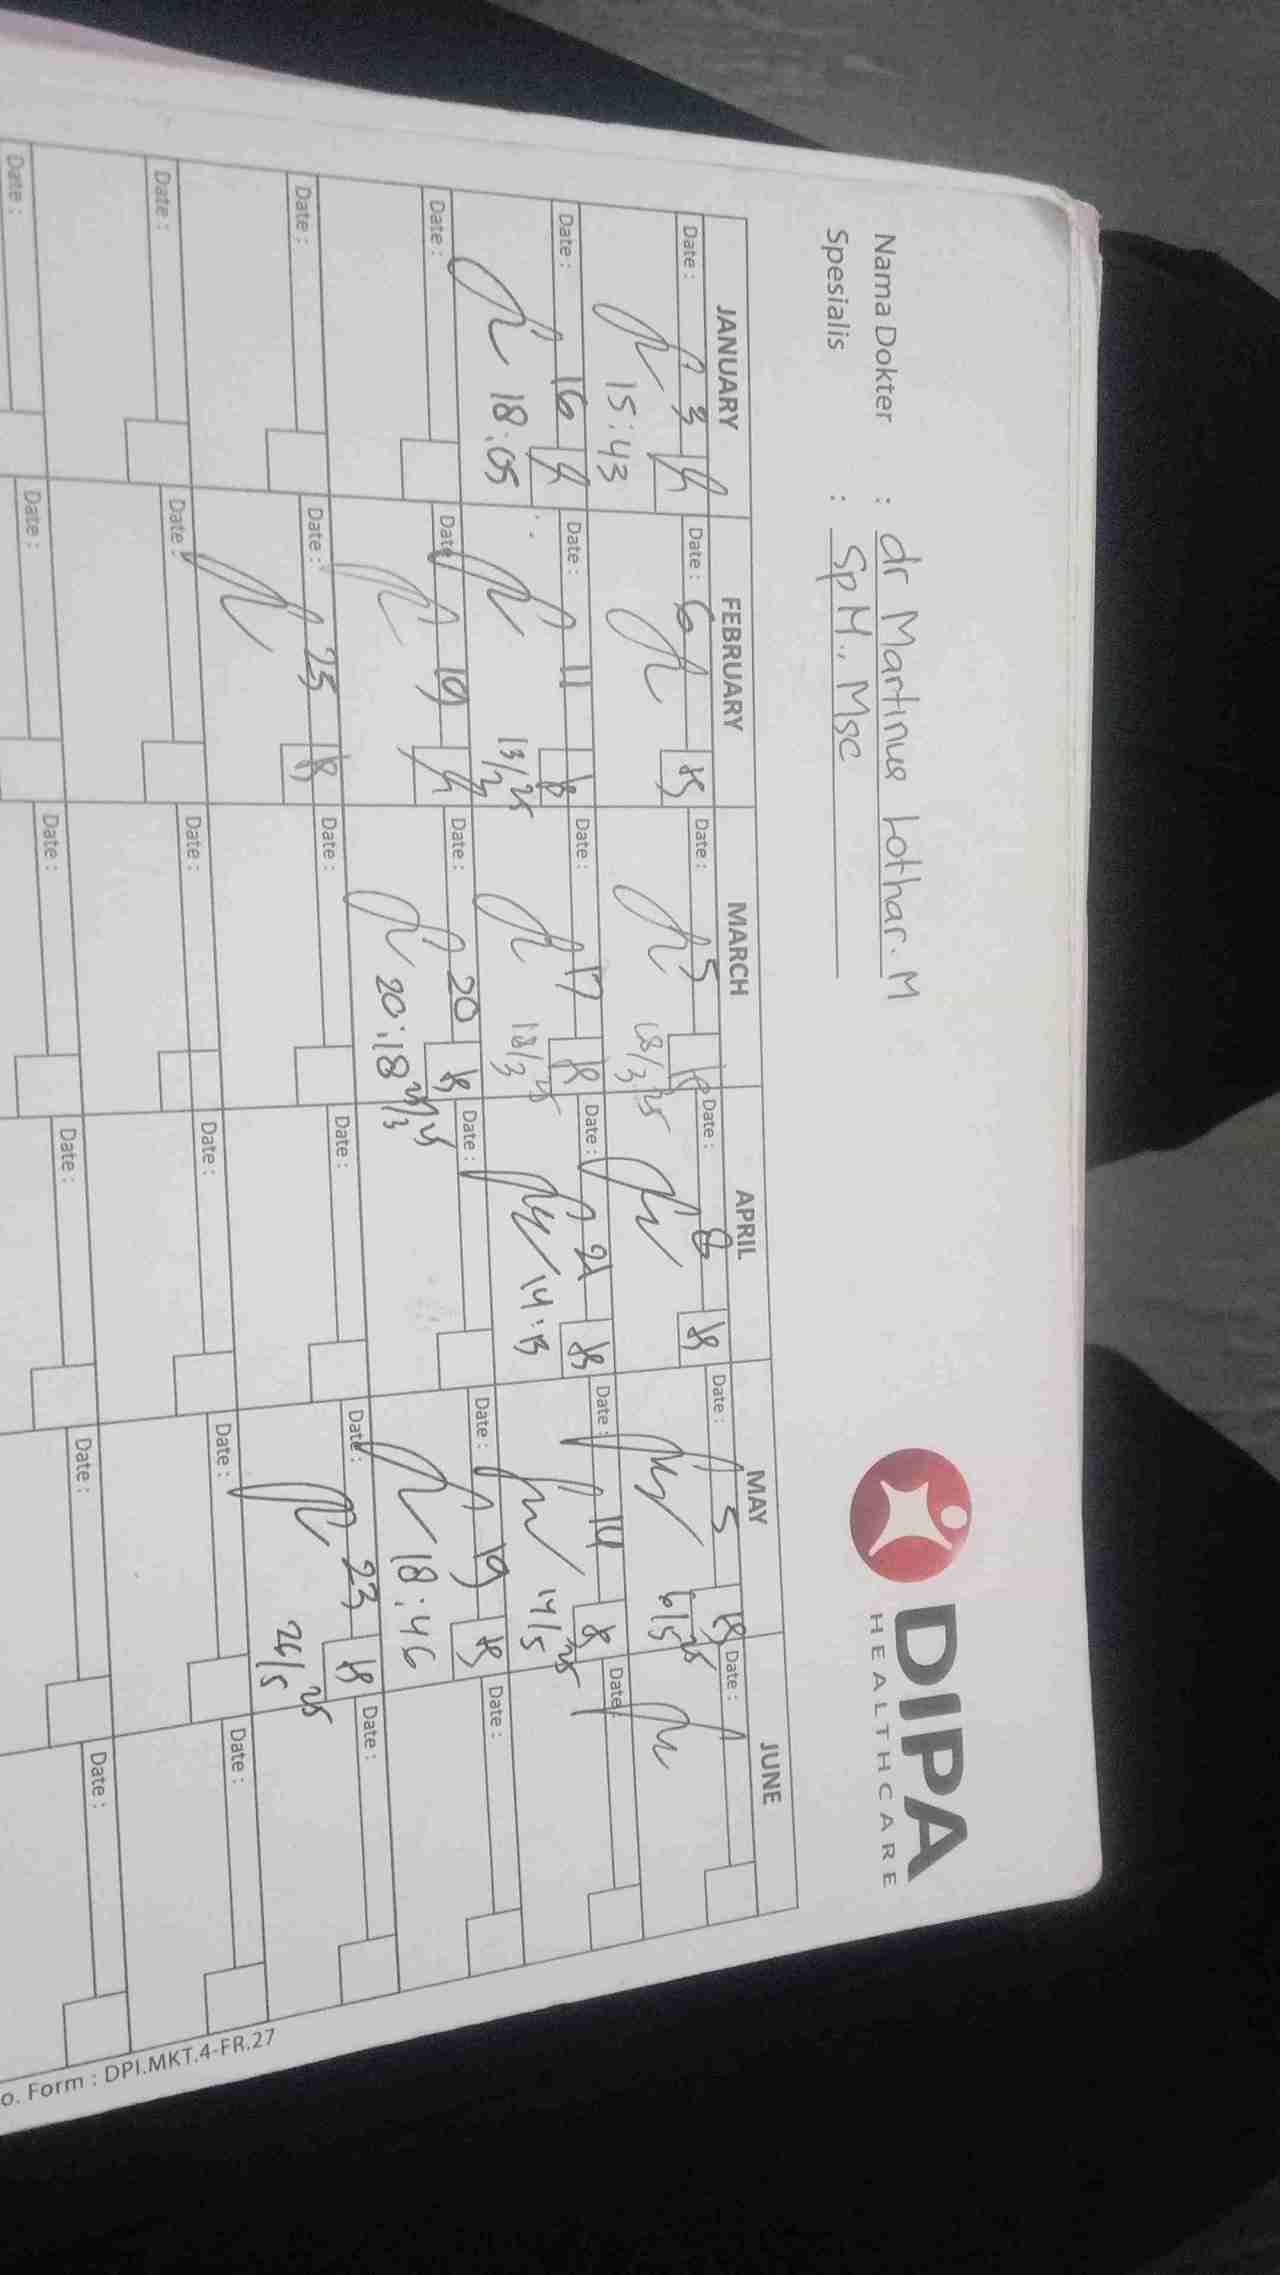 DIPA
HEALTHCARE
Nama Dokter : dr Martinus Lothar. M
Spesialis : SpM., Msc
JANUARY FEBRUARY MARCH APRIL MAY JUNE
Date : 3 Date : 6 Date : 5 Date : 8 Date : 5 Date :
15:43 18/3 25 6/5 25
Date : 16 Date : 11 Date : 17 Date : 21 Date : 14 Date
18:05 13/2 25 18/3 25 14:13 14/5 25
Date : Date 19 Date : 20 Date : Date : 19 Date :
20:18 25/3 18:46
Date : Date : 25 Date : Date : Date : 23 Date :
26/5 25
Date : Date : Date : Date : Date : Date :
Date : Date : Date : Date : Date : Date :
o. Form : DPI.MKT.4-FR.27